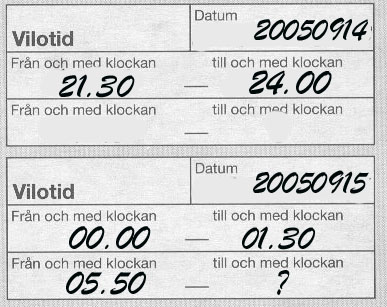 Vilotid
Datum
20050914
Från och med klockan till och med klockan
21.30 — 24.00
Från och med klockan till och med klockan
—
Vilotid
Datum
20050915
Från och med klockan till och med klockan
00.00 — 01.30
Från och med klockan till och med klockan
05.50 — ?